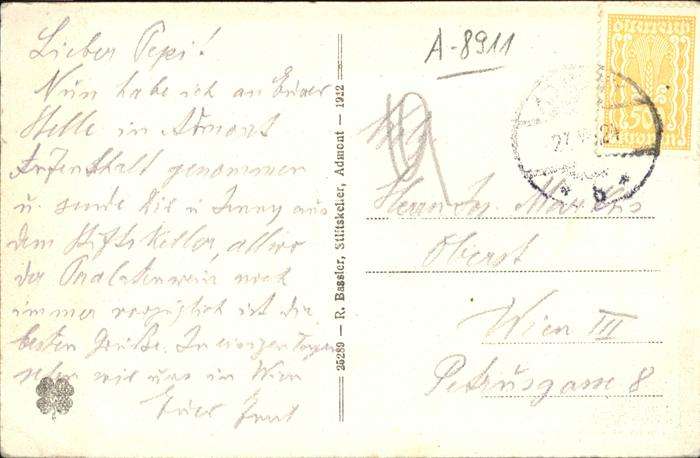 Lieber Pepi!
Nun habe ich an Eurer
Stelle in Admont
Aufenthalt genommen
u. sende Dir u. Jenny aus
dem Stiftskeller, allwo
der Pralatenwein noch
immer vorzüglich ist die
besten Grüße. In einigen Tagen
sehen wir uns in Wien
Euer
25289 — R. Bassler, Stiftskeller, Admont — 1912
A-8911
Herrn
Oberst
Wien III
Petrusgasse 8
Österreich
50
Kronen
27
24
* b *